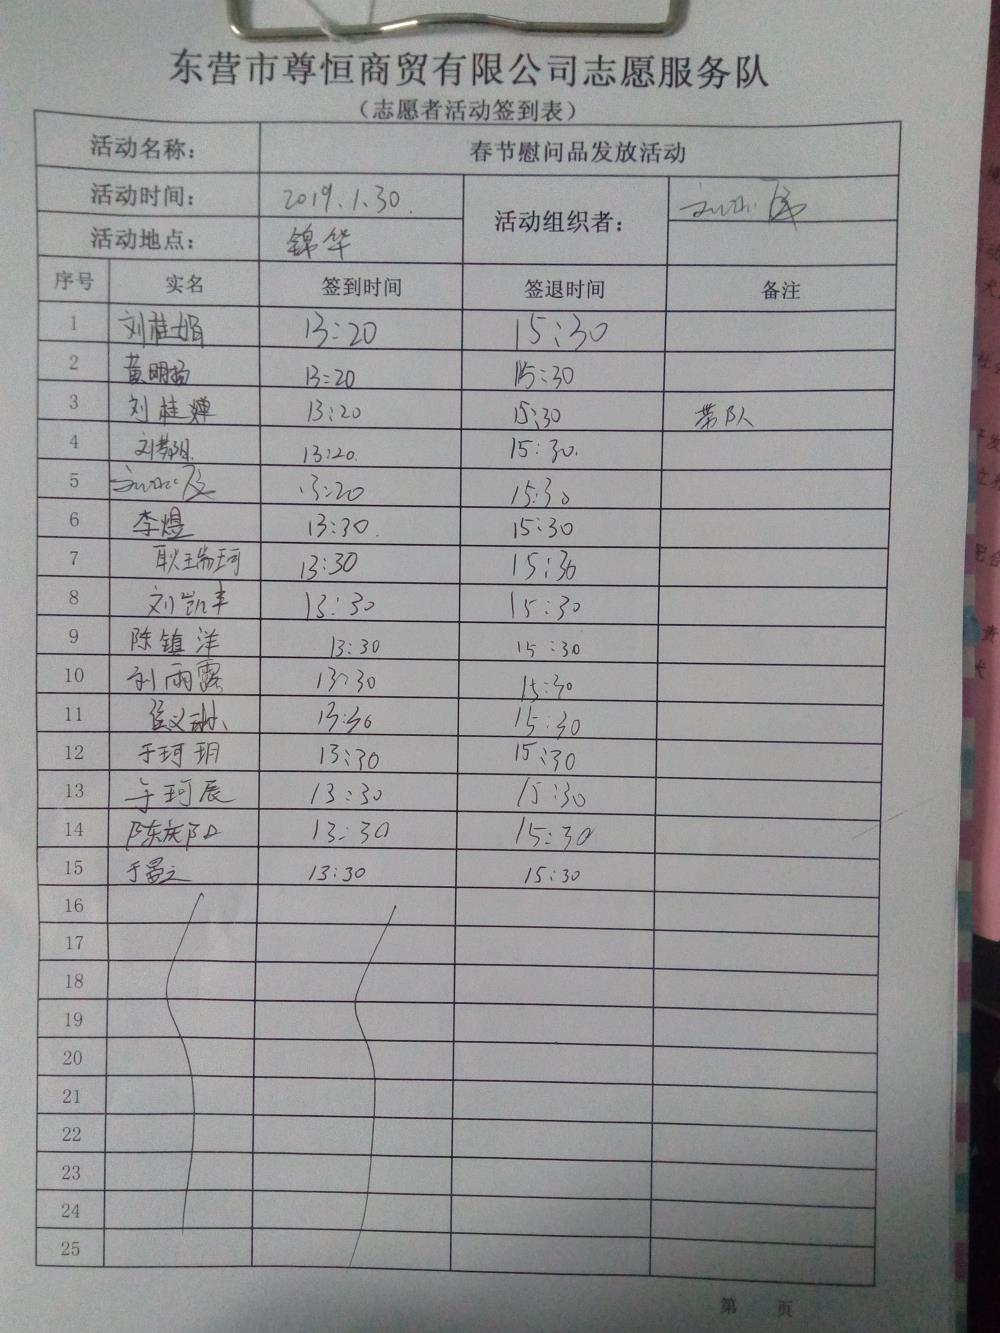 东营市尊恒商贸有限公司志愿服务队
（志愿者活动签到表）
活动名称： 春节慰问品发放活动
活动时间： 2019.1.30. 活动组织者：
活动地点： 锦华
序号 实名 签到时间 签退时间 备注
1 刘桂娟 13:20 15:30
2 黄明扬 13:20 15:30
3 刘桂婵 13:20 15:30 带队
4 13:20. 15:30.
5 13:20 15:30
6 李煜 13:30. 15:30
7 耿瑞珂 13:30 15:30
8 刘凯丰 13:30 15:30
9 陈镇洋 13:30 15:30
10 刘雨露 13:30 15:30
11 13:30 15:30
12 于珂玥 13:30 15:30
13 于珂辰 13:30 15:30
14 陈庆阳 13:30 15:30
15 13:30 15:30
16
17
18
19
20
21
22
23
24
25
第 页